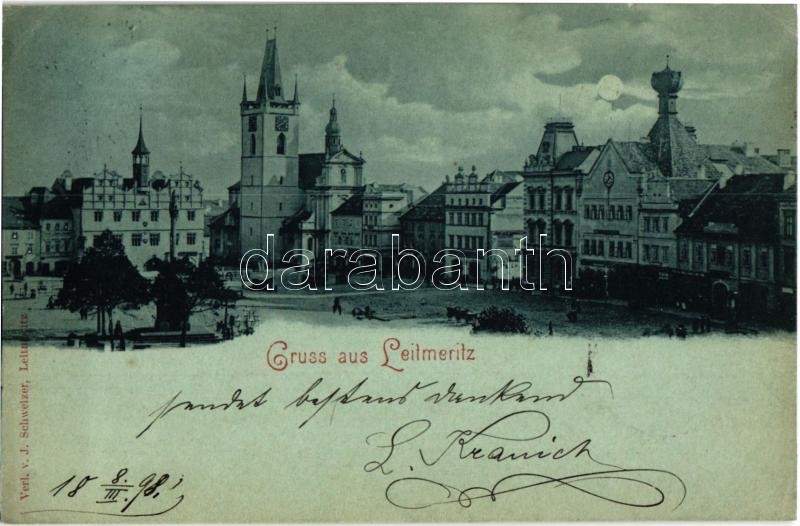 darabanth
Gruss aus Leitmeritz
sendet bestens dankend
L. Kranich
18 8/III. 98.
Verl. v. J. Schweizer, Leitmeritz